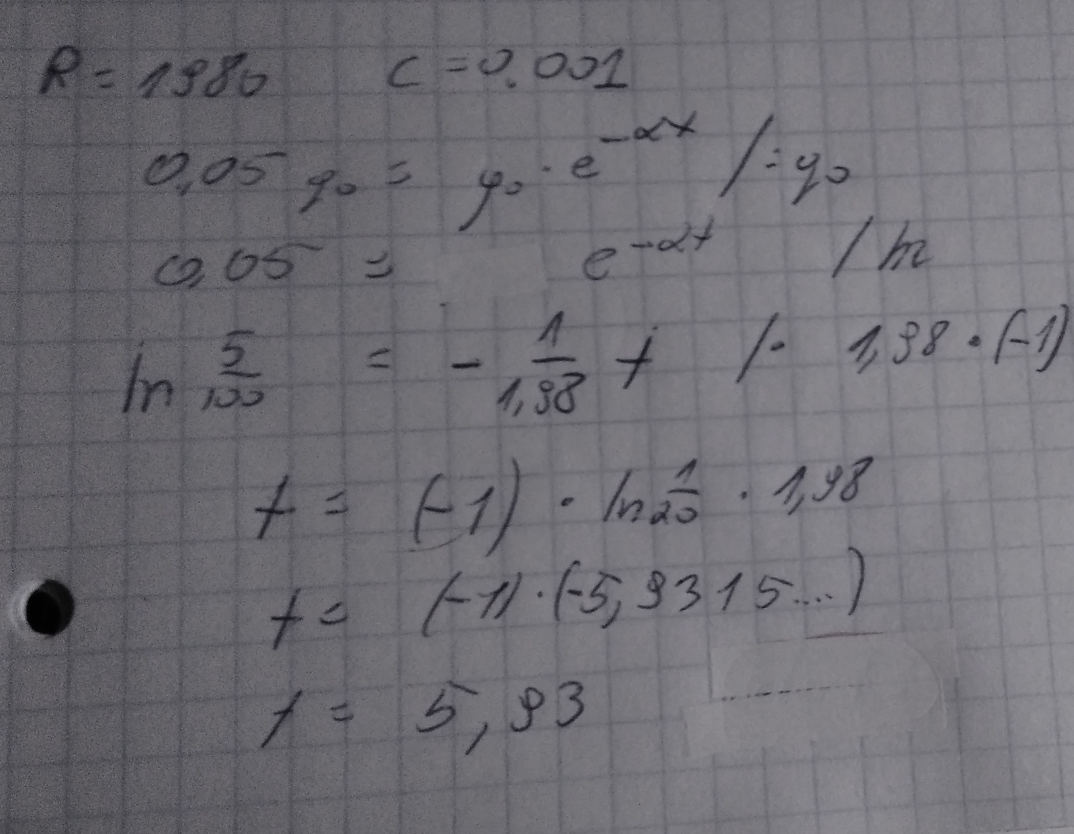 R = 1980 C = 0.001
0,05 q₀ = q₀ · e^{-αt} / : q₀
0,05 = e^{-αt} / ln
ln 5/100 = - 1/1,98 t / · 1,98 · (-1)
t = (-1) · ln 1/20 · 1,98
t = (-1) · (-5,9315...)
t = 5,93